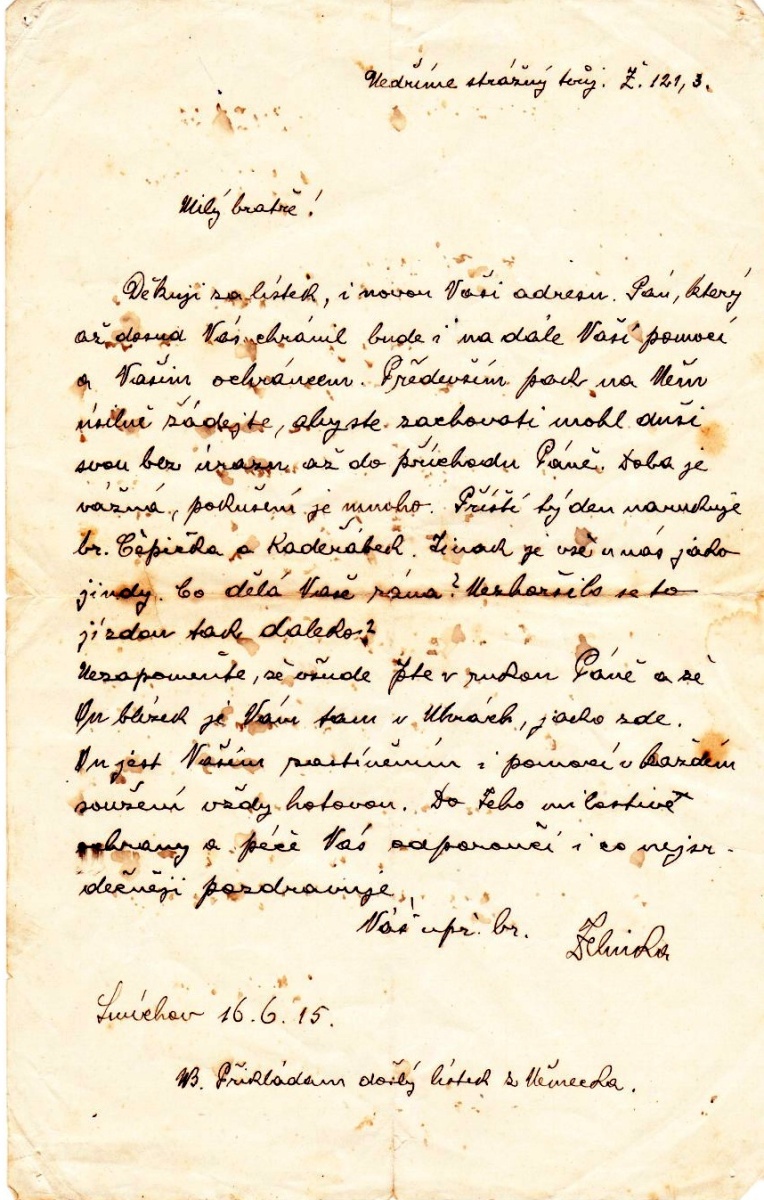 Nedříme strážný tvůj. Ž. 121, 3.
Milý bratře!
Děkuji za lístek, i novou Vaši adresu. Pán, který
až dosud Vás chránil bude i na dále Vaší pomocí
a Vaším ochráncem. Především pak na Něm
úsilně žádejte, abyste zachovati mohl duši
svou bez úrazu až do příchodu Páně. Doba je
vážná, pokušení je mnoho. Příští týden narukuje
br. Čepička a Kadeřábek. Jinak je vše u nás jako
jindy. Co dělá Vaše rána? Nezhoršila se to
jízdou tak daleko?
Nezapomeňte, že všude jste v rukou Páně a že
On blízek je Vám tam v Uhrách, jako zde.
On jest Vaším zastíněním i pomocí v každém
soužení vždy hotovou. Do Jeho milostivé
ochrany a péče Vás odporoučí i co nejsr-
dečněji pozdravuje
Váš upř. br.
Smíchov 16.6.15.
NB. Přikládám došlý lístek z Německa.